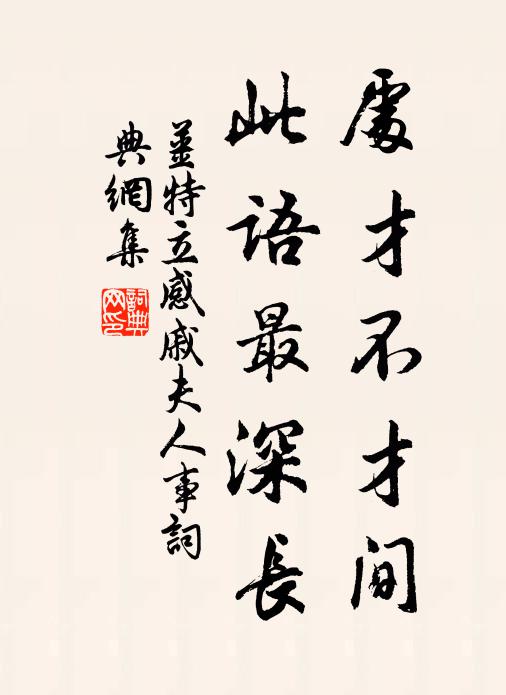 處才不才間
此語最深長
姜特立感戚夫人事詞
典網集
詞典網印